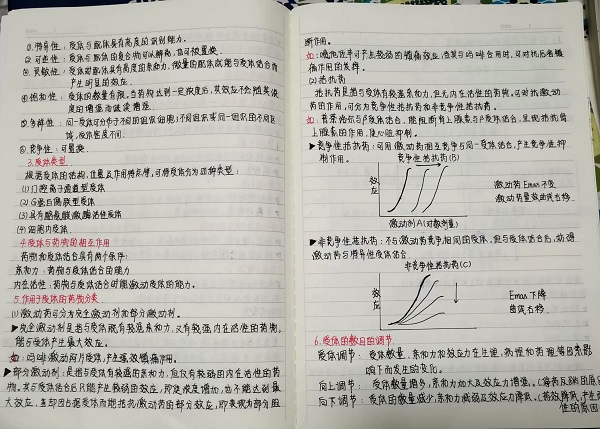 ①特异性：受体与配体具有高度的识别能力。
②可逆性：受体与配体的复合物可以解离，也可被置换。
③灵敏性：受体对配体具有高度的亲和力，微量的配体就能与受体结合而
产生明显的效应。
④饱和性：受体的数量有限，当药物达到一定浓度后，其效应不会随其浓
度的增强而继续增强。
⑤多样性：同一受体可分布于不同的组织细胞；不同组织或同一组织的不同区
域，受体密度不同。
⑥竞争性：可置换。
3.受体类型
根据受体的结构、位置及作用特点等，可将受体分为四种类型：
(1)门控离子通道型受体
(2)G蛋白偶联型受体
(3)具有酪氨酸激酶活性受体
(4)细胞内受体
4.受体与药物的相互作用
药物和受体结合具有两个条件：
亲和力：药物与受体结合的能力
内在活性：药物与受体结合时能激动受体的能力。
5.作用于受体的药物分类
(1)激动药可分为完全激动剂和部分激动剂。
▶完全激动剂是指与受体既有较强亲和力，又有较强内在活性的药物，
能与受体产生最大效应。
如：吗啡激动阿片受体，产生强效镇痛作用。
▶部分激动剂：是指与受体有较强的亲和力，但仅有较弱的内在活性的药
物。其与受体结合后只能产生较弱的效应，即使浓度增加，也不能达到最
大效应，直却因占据受体而能拮抗激动药的部分效应，即表现为部分阻
断作用。
如：喷他佐辛可产生较弱的镇痛效应，但其与吗啡合用时，可对抗后者镇
痛作用的发挥。
(2)拮抗药
拮抗药是指与受体有较强亲和力，但无内在活性的药物。可对抗激动
药的作用，可分为竞争性拮抗药和非竞争性拮抗药。
如：普萘洛尔与β受体结合，能阻断肾上腺素与β受体结合，呈现拮抗肾
上腺素的作用，使心脏抑制。
▶竞争性拮抗药：可用激动药相互竞争与同一受体结合，产生竞争性抑
制作用。
竞争性拮抗药(B)
效应
激动药Emax不变
激动药量效曲线右移
激动剂A(对数剂量)
▶非竞争性拮抗药：不与激动药竞争相同的受体，但与受体结合后，妨碍
激动药与特异性受体结合
非竞争性拮抗药(C)
效应
Emax下降
曲线右移
6.受体的数目的调节
受体调节：受体数量、亲和力和效应力在生理、病理和药理等因素影
响下而发生的变化。
向上调节：受体数量增多，亲和力加大及效应力增强。
向下调节：受体的数量减少，亲和力减弱及效应力降低。
性的原因